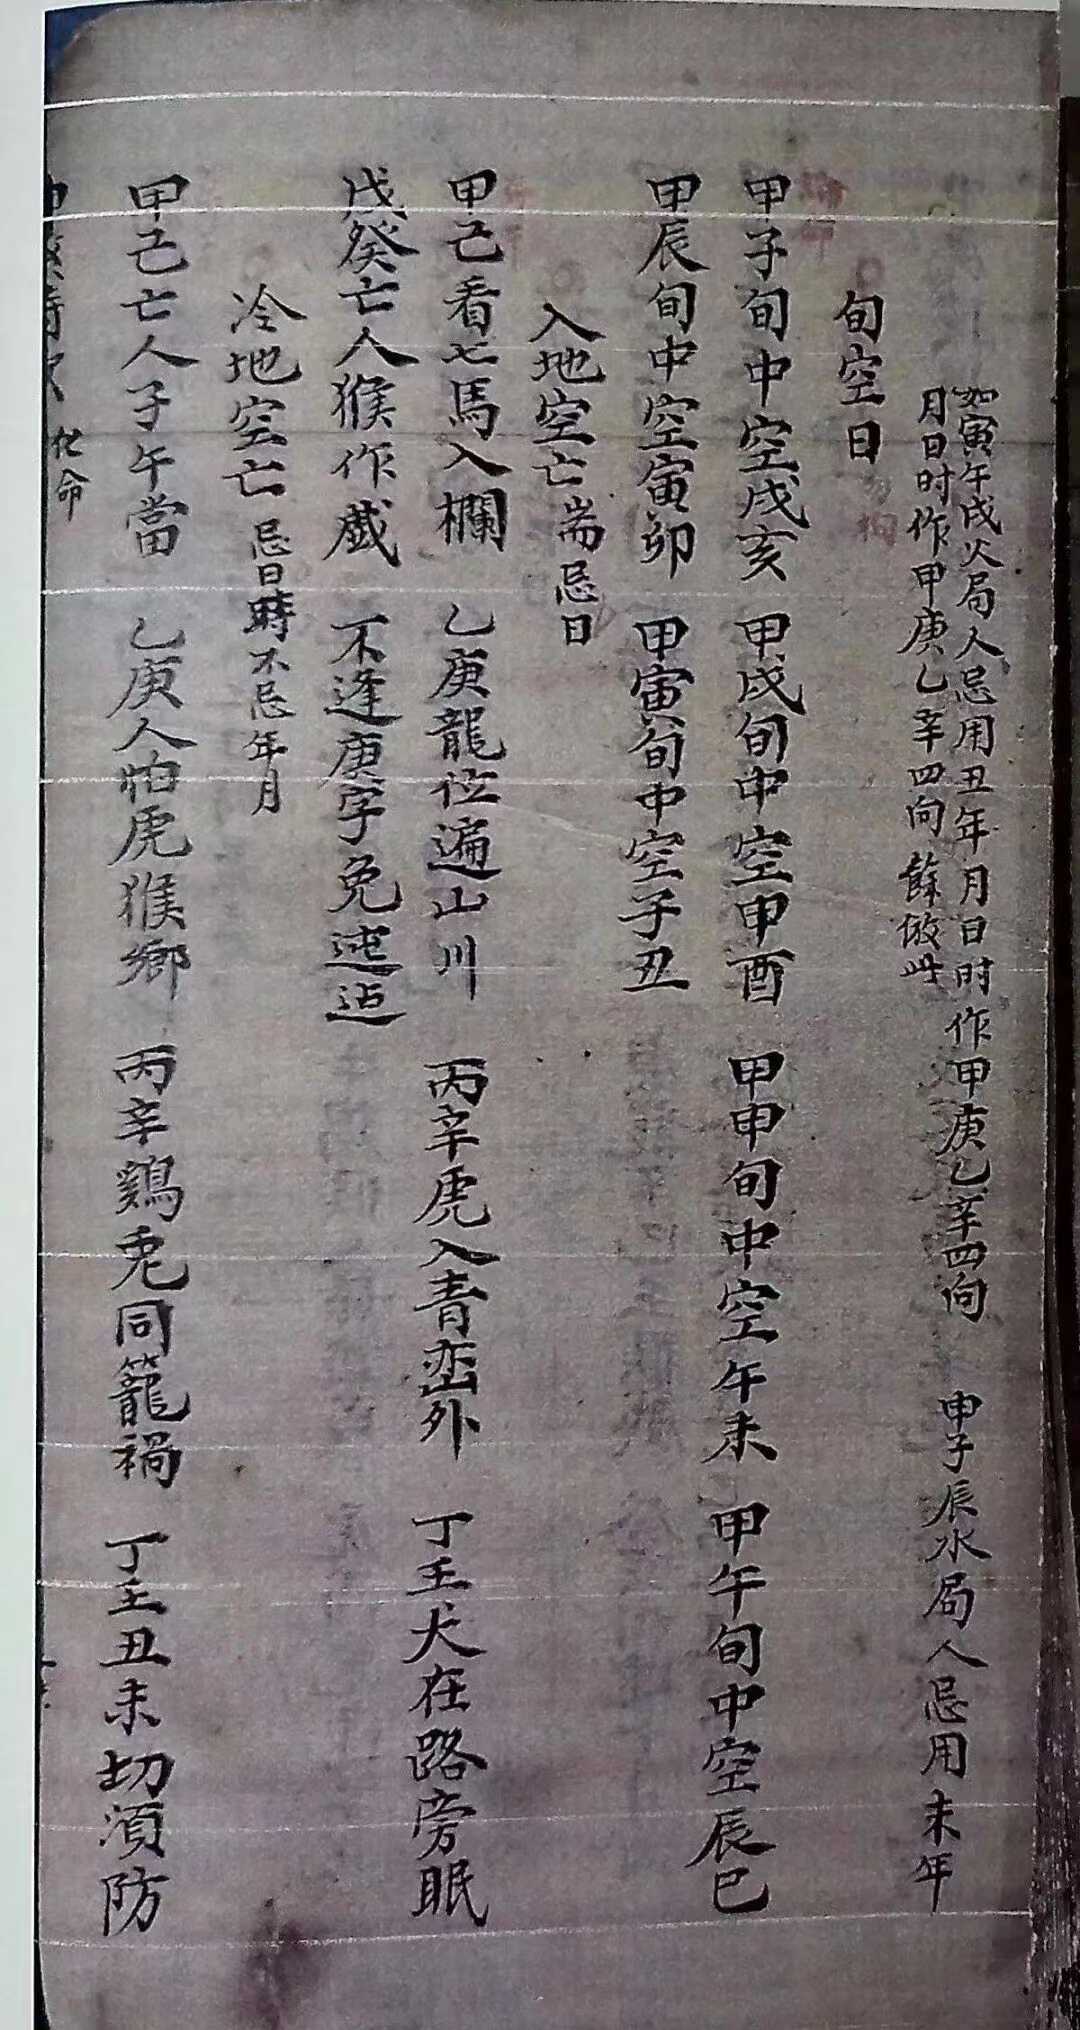 如寅午戌火局人忌用丑年月日时作甲庚乙辛四向　申子辰水局人忌用未年
月日时作甲庚乙辛四向餘倣此
旬空日
甲子旬中空戌亥　甲戌旬中空申酉　甲申旬中空午未　甲午旬中空辰巳
甲辰旬中空寅卯　甲寅旬中空子丑
入地空亡耑忌日
甲己看亡馬入欄　乙庚龍位遍山川　丙辛虎入青巒外　丁壬犬在路旁眠
戊癸亡人猴作戯　不逢庚字免迍邅
冷地空亡忌日時不忌年月
甲己亡人子午當　乙庚人怕虎猴鄉　丙辛鷄兎同籠禍　丁壬丑未切須防
化命